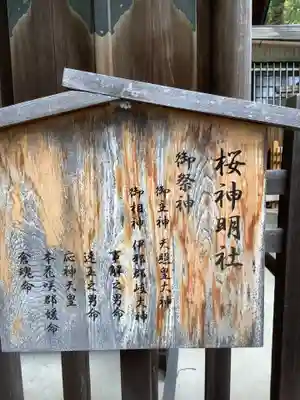 桜神明社
御祭神
御主神 天照皇大神
御相神 伊邪那岐大神
事解之男命
速玉之男命
応神天皇
木花咲耶媛命
倉魂命